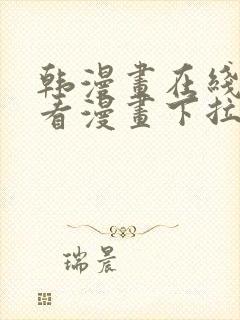 韩漫畫在綫
看漫畫下拉
瑞晨